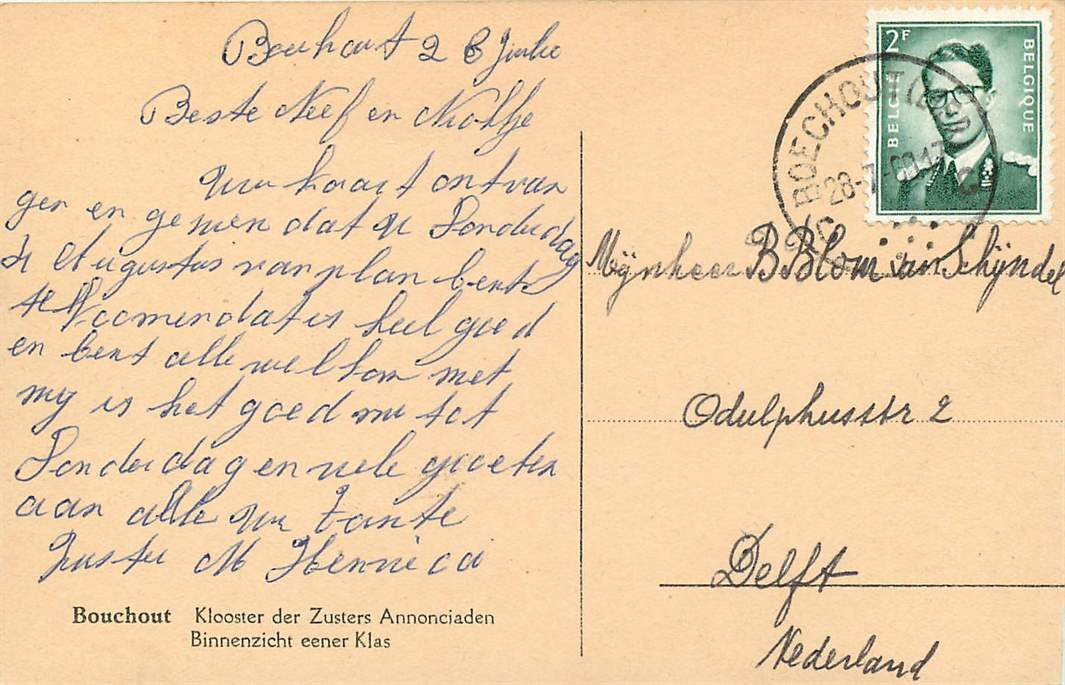 Bouchout 28 Julie
Beste Neef en Nichtje
Uw kaart ontvan
gen en gezien dat u Donderdag
4 Augustus van plan bent
te Koomen dat is heel goed
en bent alle wel kom met
my is het goed nu tot
Donderdag en vele groeten
aan alle uw tante
Zuster M Henrica
Bouchout Klooster der Zusters Annonciaden
Binnenzicht eener Klas
2F
BELGIE BELGIQUE
BOECHOUT
28-7-60
C C
Mÿnheer B Blom van Schÿndel
Odulphusstr 2
Delft
Nederland